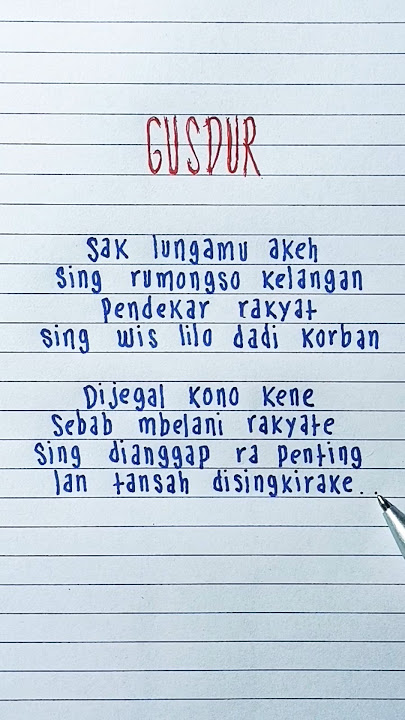 GUSDUR
Sak lungamu akeh
Sing rumongso kelangan
Pendekar rakyat
Sing wis lilo dadi korban
Dijegal kono kene
Sebab mbelani rakyate
Sing dianggap ra penting
lan tansah disingkirake...